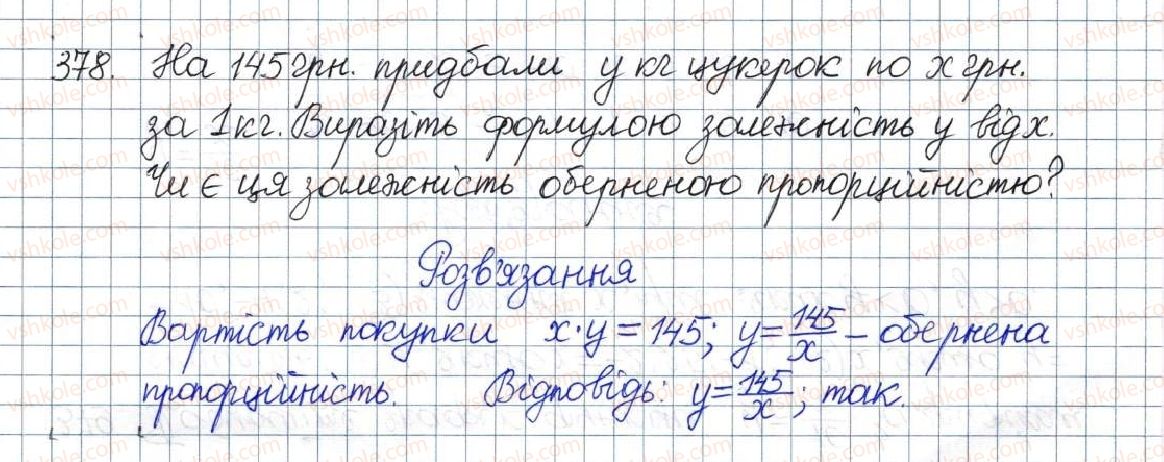 378. На 145 грн. придбали у кг цукерок по х грн.
за 1 кг. Виразіть формулою залежність у від х.
Чи є ця залежність оберненою пропорційністю?
Розв'язання
Вартість покупки x·y = 145; y = 145/x – обернена
пропорційність. Відповідь: y = 145/x; так.